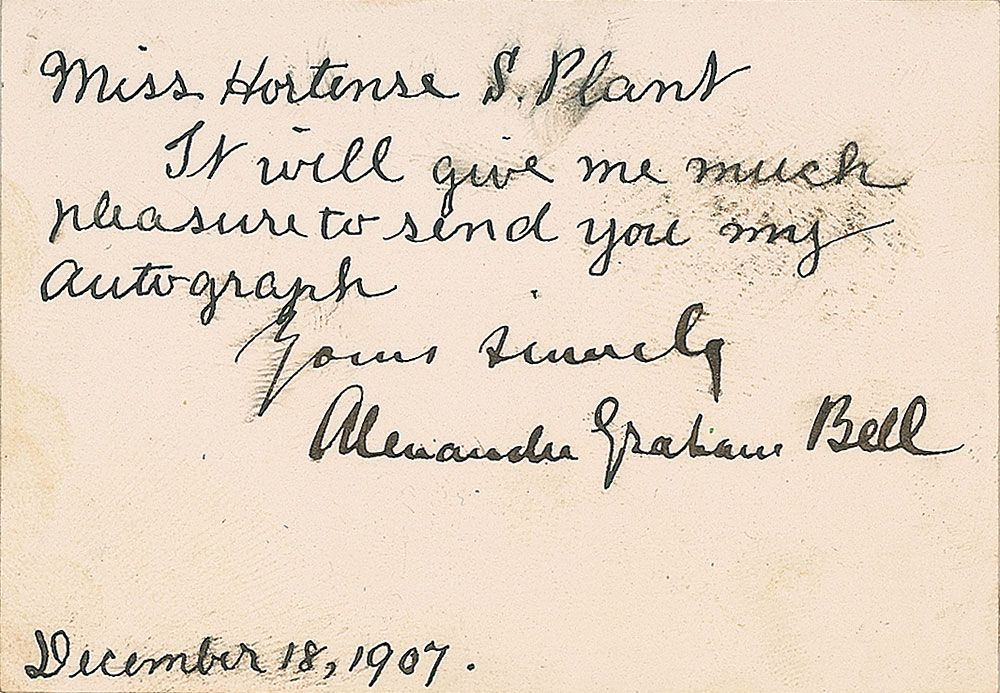 Miss Hortense S. Plant
It will give me much
pleasure to send you my
Autograph
Yours sincerely
Alexander Graham Bell
December 18, 1907.